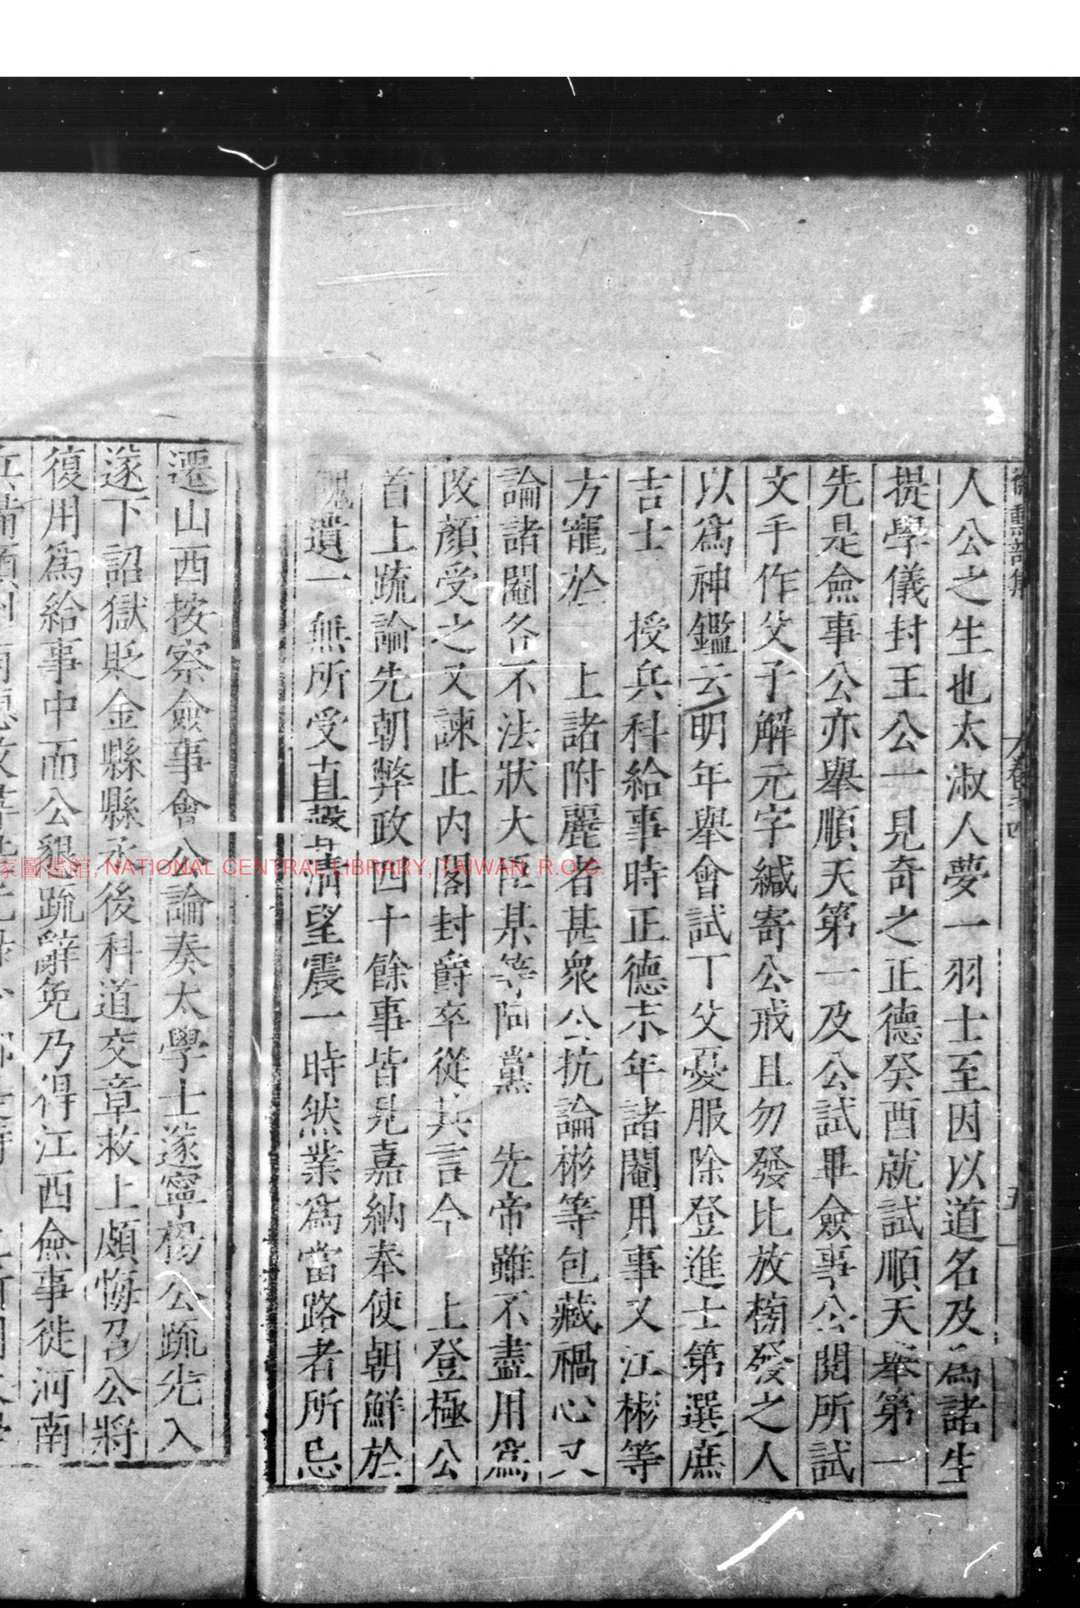 人公之生也太淑人夢一羽士至因以道名及為諸生
提學儀封王公一見奇之正德癸酉就試順天舉第一
先是僉事公亦舉順天第一及公試畢僉事公閱所試
文手作父子解元字緘寄公戒且勿發比放榜發之人
以爲神鑑云明年舉會試丁父憂服除登進士第選庶
吉士 授兵科給事時正德末年諸閹用事又江彬等
方寵於 上諸附麗者甚衆公抗論彬等包藏禍心又
論諸閹各不法狀大臣某等阿黨 先帝雖不盡用爲
改顔受之又諫止內閣封爵卒從其言今 上登極公
首上疏論先朝弊政四十餘事皆見嘉納奉使朝鮮於
餽遺一無所受直聲 清望震一時然業爲當路者所忌
遷山西按察僉事會公論奏太學士遂寧楊公疏先入
遂下詔獄貶金縣縣丞後科道交章救上頗悔召公將
復用爲給事中而公懇疏辭免乃得江西僉事徙河南
家圖書館, NATIONAL CENTRAL LIBRARY, TAIWAN, R.O.C.